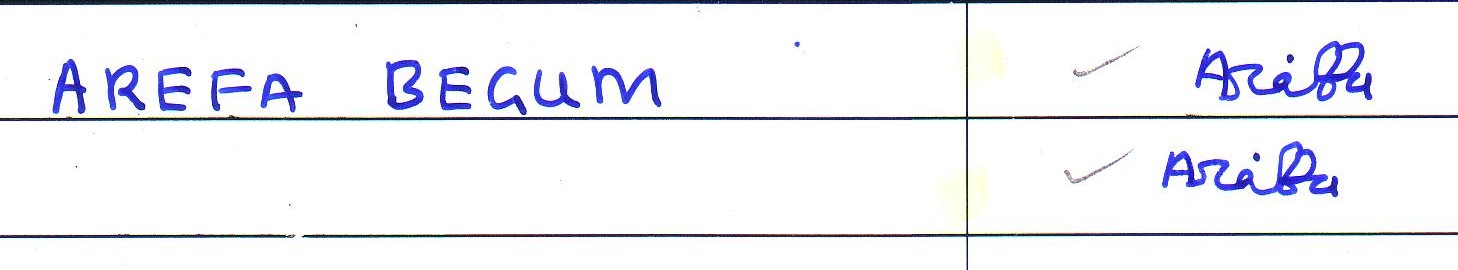 AREFA BEGUM ✓ Arifa
✓ Arifa